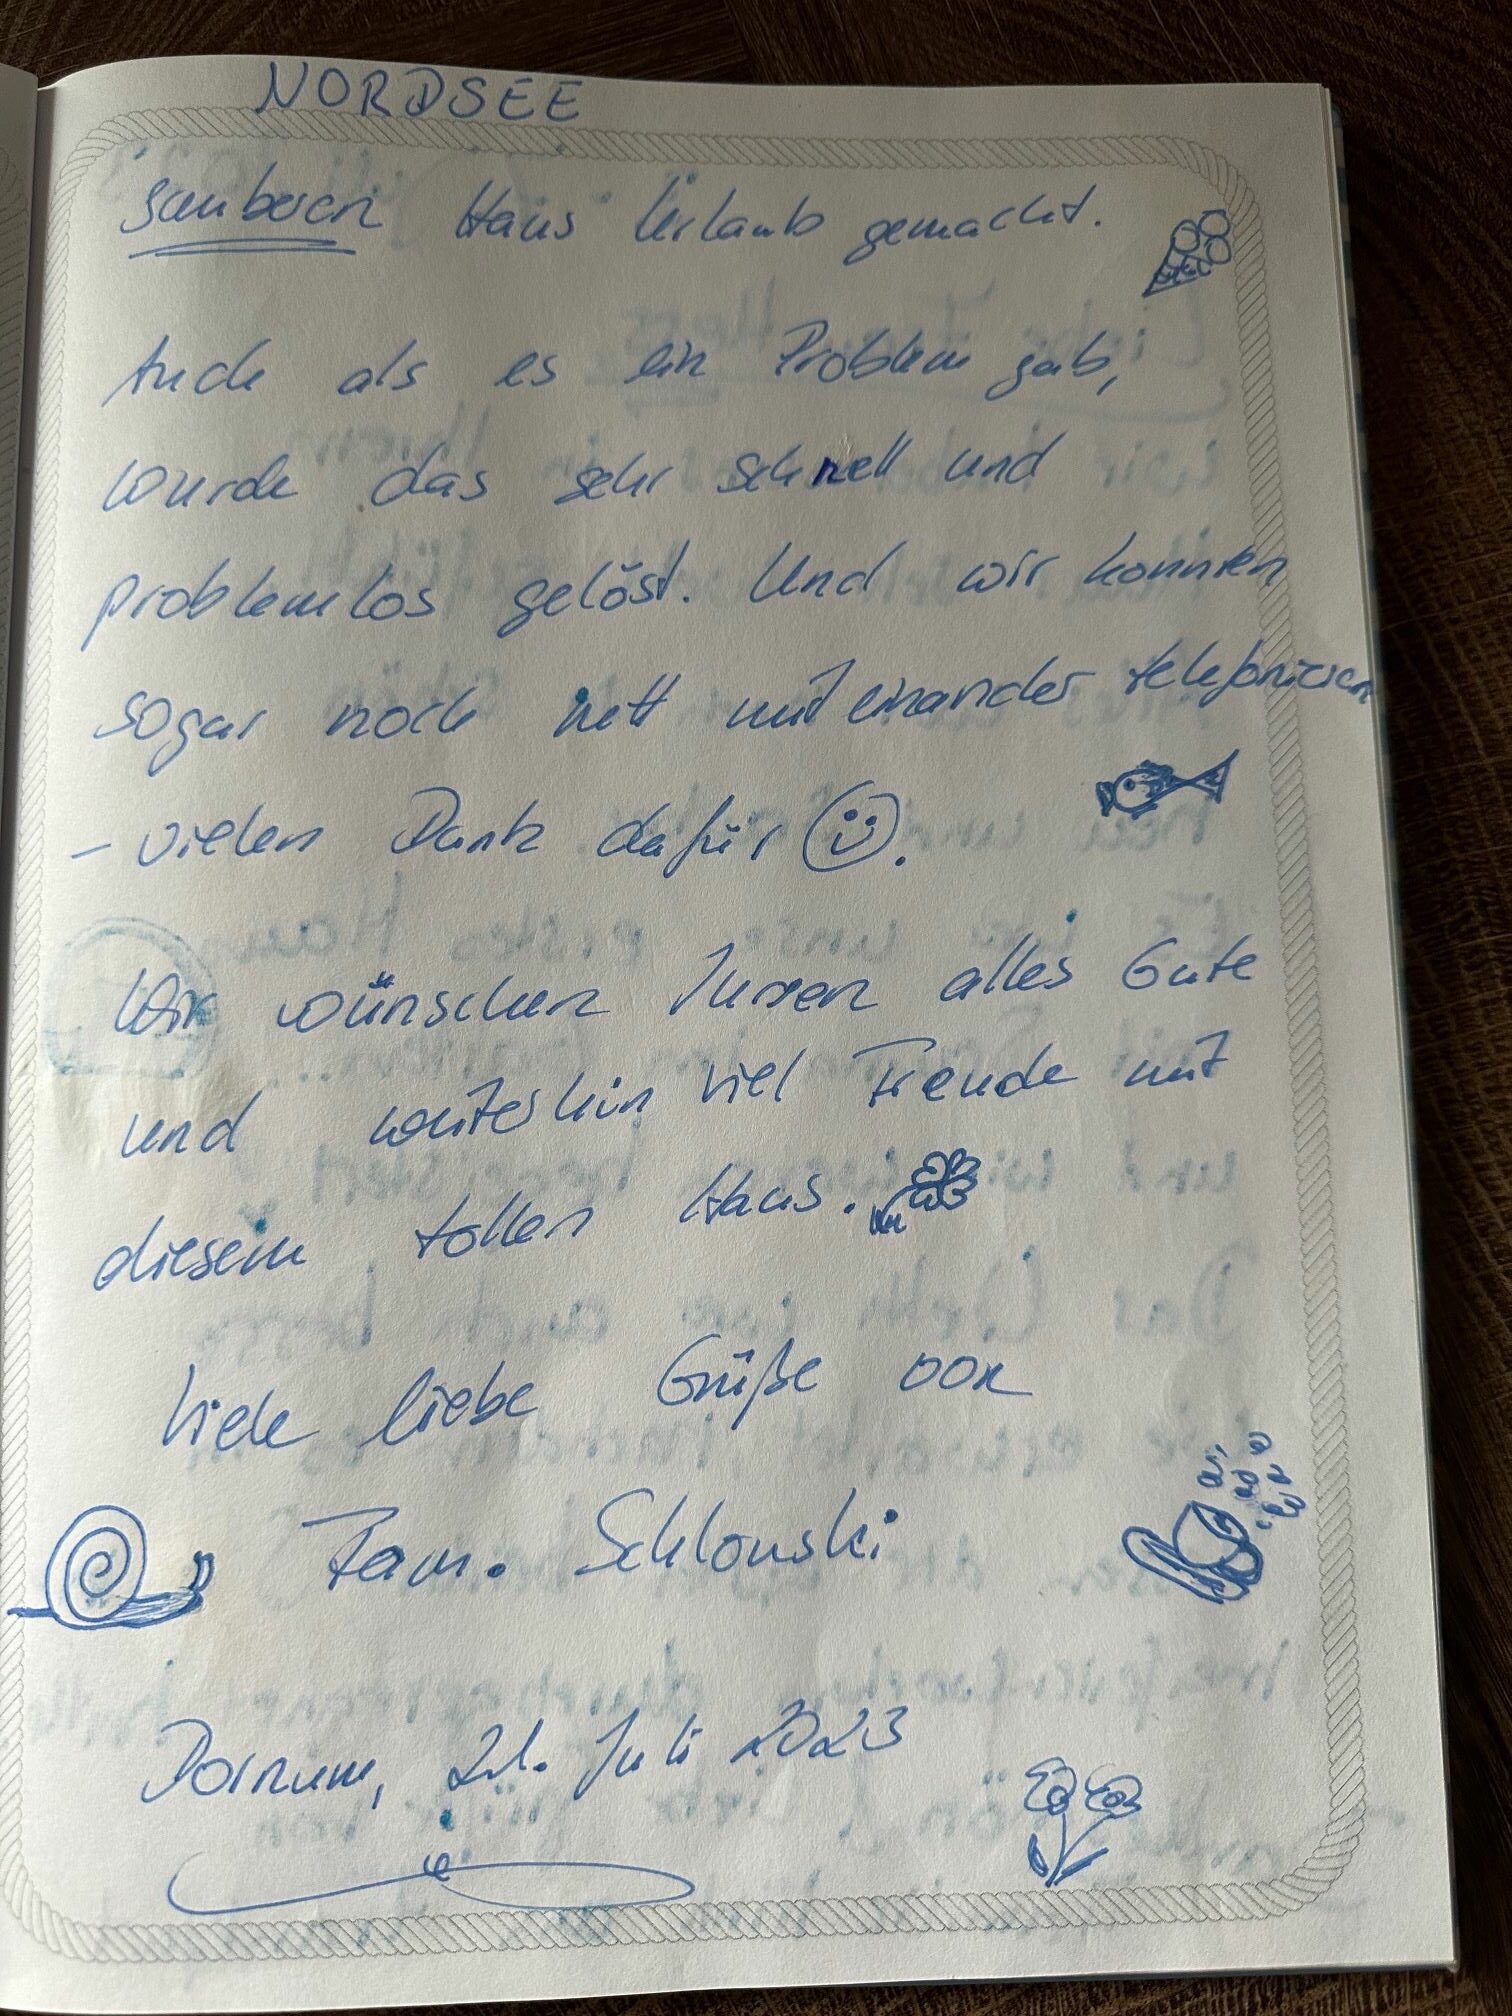 NORDSEE
sauberen Haus Urlaub gemacht.
Auch als es ein Problem gab,
wurde das sehr schnell und
problemlos gelöst. Und wir konnten
sogar noch nett miteinander telefonieren
- vielen Dank dafür.
Wir wünschen Ihnen alles Gute
und weiterhin viel Freude mit
diesem tollen Haus.
Viele liebe Grüße von
Fam. Schlonski
Dornum, 21. Juli 2023